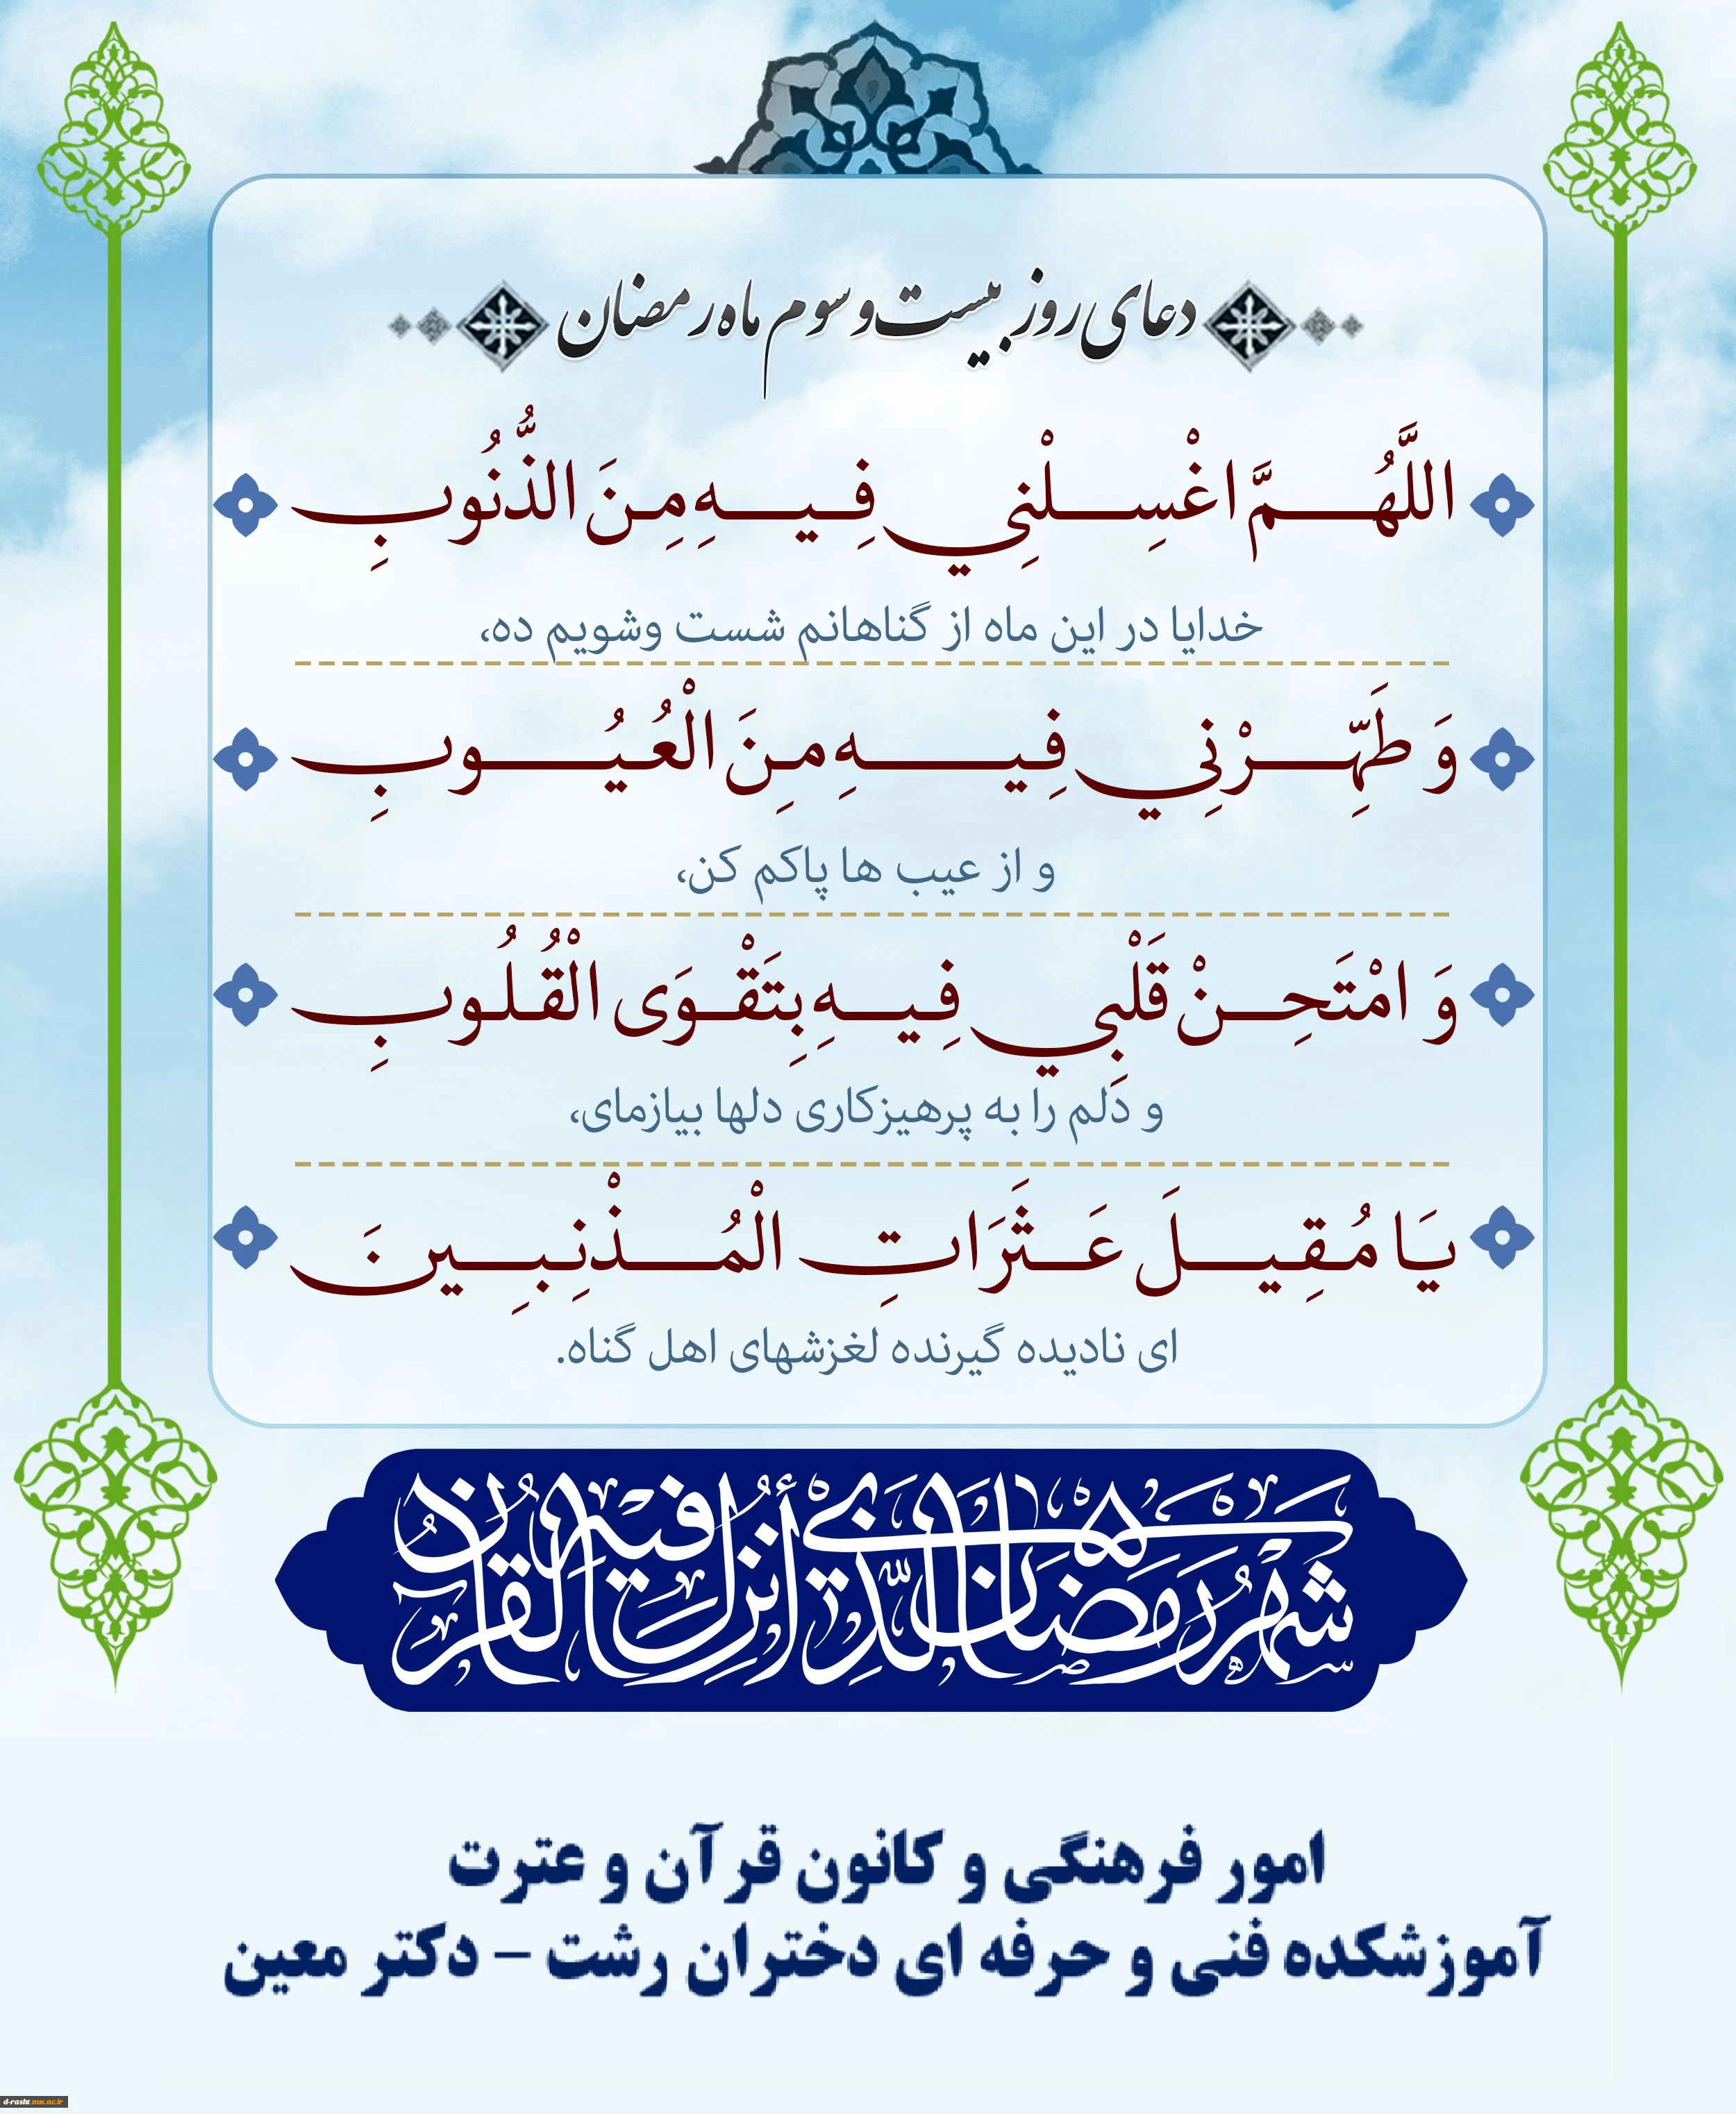 دعای روز بیست و سوم ماه رمضان
اللَّهُمَّ اغْسِلْنِي فِيهِ مِنَ الذُّنُوبِ
خدایا در این ماه از گناهانم شست وشویم ده،
وَ طَهِّرْنِي فِيهِ مِنَ الْعُيُوبِ
و از عیب ها پاکم کن،
وَ امْتَحِنْ قَلْبِي فِيهِ بِتَقْوَى الْقُلُوبِ
و دلم را به پرهیزکاری دلها بیازمای،
يَا مُقِيلَ عَثَرَاتِ الْمُذْنِبِينَ
ای نادیده گیرنده لغزشهای اهل گناه.
شهر رمضان الذي أنزل فيه القرآن
امور فرهنگی و کانون قرآن و عترت
آموزشکده فنی و حرفه ای دختران رشت – دکتر معین
d-rasht.nus.ac.ir